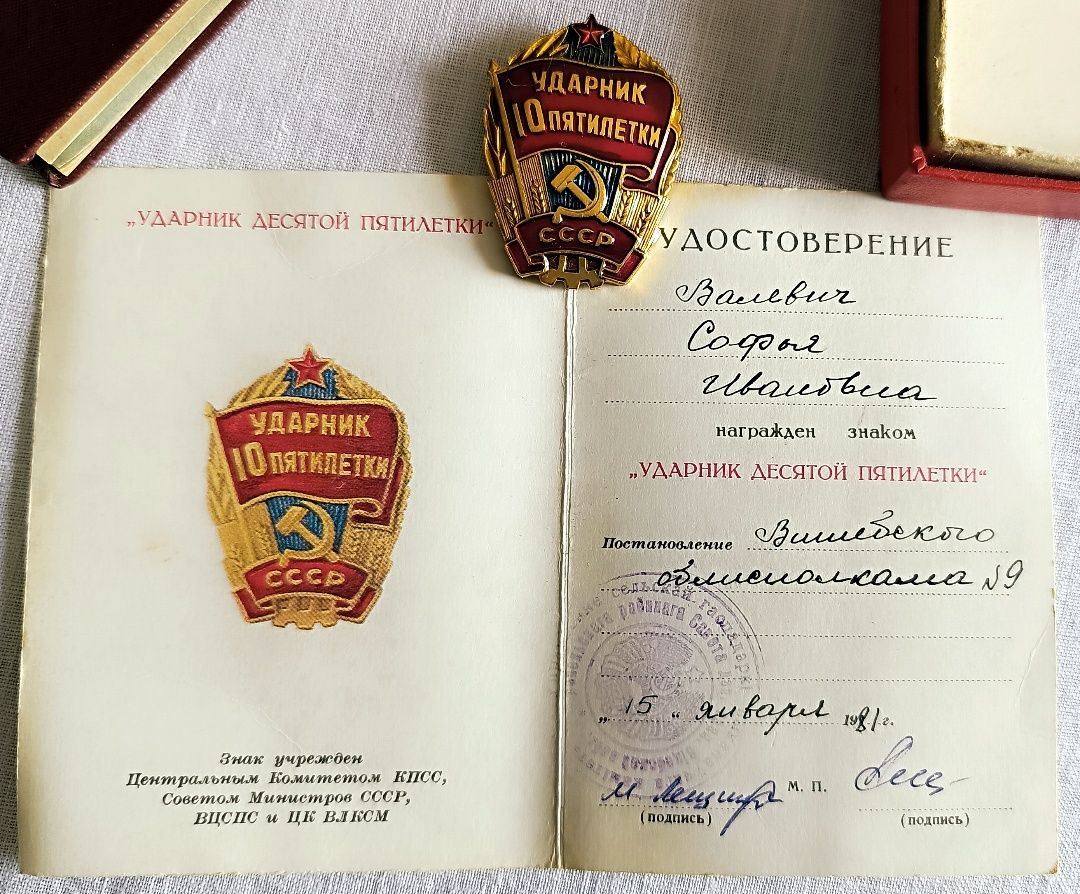 УДАРНИК
10 ПЯТИЛЕТКИ
СССР
„УДАРНИК ДЕСЯТОЙ ПЯТИЛЕТКИ“
УДАРНИК
10 ПЯТИЛЕТКИ
СССР
Знак учрежден
Центральным Комитетом КПСС,
Советом Министров СССР,
ВЦСПС и ЦК ВЛКСМ
УДОСТОВЕРЕНИЕ
Валевич
Софья
Ивановна
награжден знаком
„УДАРНИК ДЕСЯТОЙ ПЯТИЛЕТКИ“
Постановление Витебского
облисполкама №9
сельскай гаспадаркі
раённага Савета
„15“ января 1981 г.
М. П.
(подпись) (подпись)